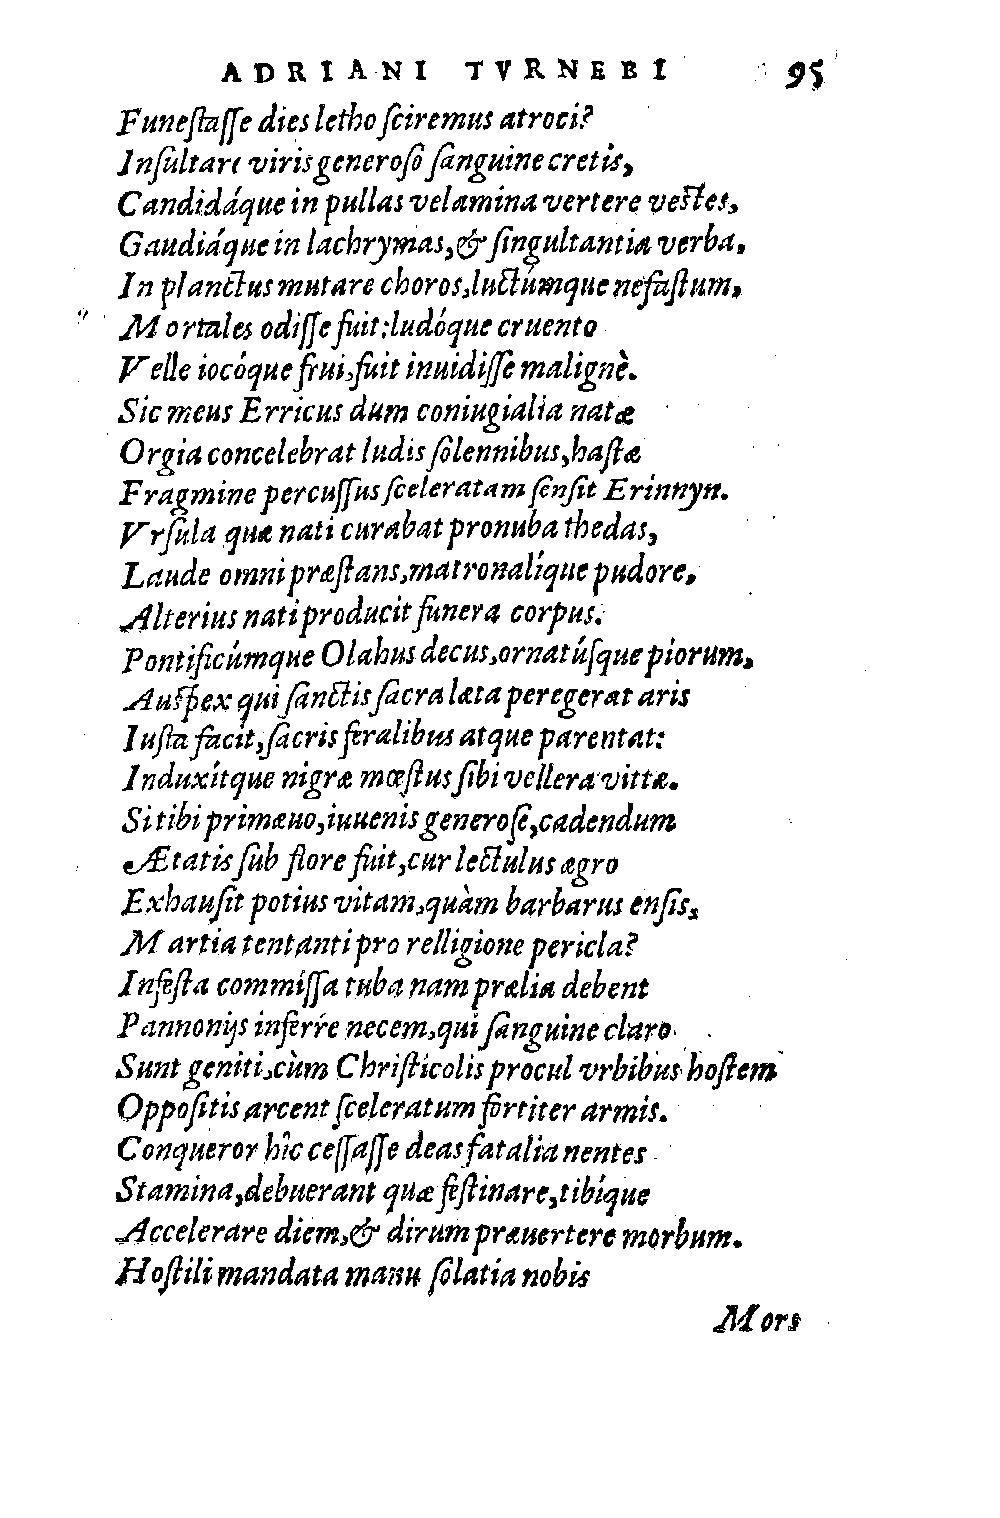 ADRIANI TVRNEBI 95
Funeſtaſſe dies letho ſciremus atroci?
Inſultare viris generoſo ſanguine cretis,
Candidáque in pullas velamina vertere veſtes,
Gaudiáque in lachrymas, & ſingultantia verba,
In planctus mutare choros, luctúmque nefaſtum,
Mortales odiſſe fuit: ludóque cruento
Velle iocóque frui, fuit inuidiſſe malignè.
Sic meus Erricus dum coniugialia natæ
Orgia concelebrat ludis ſolennibus, haſtæ
Fragmine percuſſus ſceleratam ſenſit Erinnyn.
Vrſula quæ nati curabat pronuba thedas,
Laude omni præſtans, matronalíque pudore,
Alterius nati producit funera corpus.
Pontificúmque Olahus decus, ornatúſque piorum,
Auſpex qui ſanctis ſacra læta peregerat aris
Iuſta facit, ſacris feralibus atque parentat:
Induxítque nigræ mœſtus ſibi vellera vittæ.
Si tibi primæuo, iuuenis generoſe, cadendum
Ætatis ſub flore fuit, cur lectulus ægro
Exhauſit potius vitam, quàm barbarus enſis,
Martia tentanti pro relligione pericla?
Infeſta commiſſa tuba nam prælia debent
Pannonijs inferre necem, qui ſanguine claro
Sunt geniti, cùm Chriſticolis procul vrbibus hoſtem
Oppoſitis arcent ſceleratum fortiter armis.
Conqueror hîc ceſſaſſe deas fatalia nentes
Stamina, debuerant quæ feſtinare, tibíque
Accelerare diem, & dirum præuertere morbum.
Hoſtili mandata manu ſolatia nobis
Mors